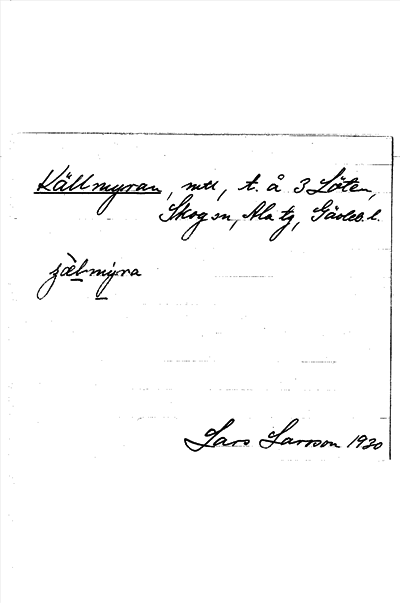 Källmyran, mtl, t. å 3 Löten,
Skogen, Ala tg, Gävleb. l.
jæ̀lmyra
Lars Larsson 1930